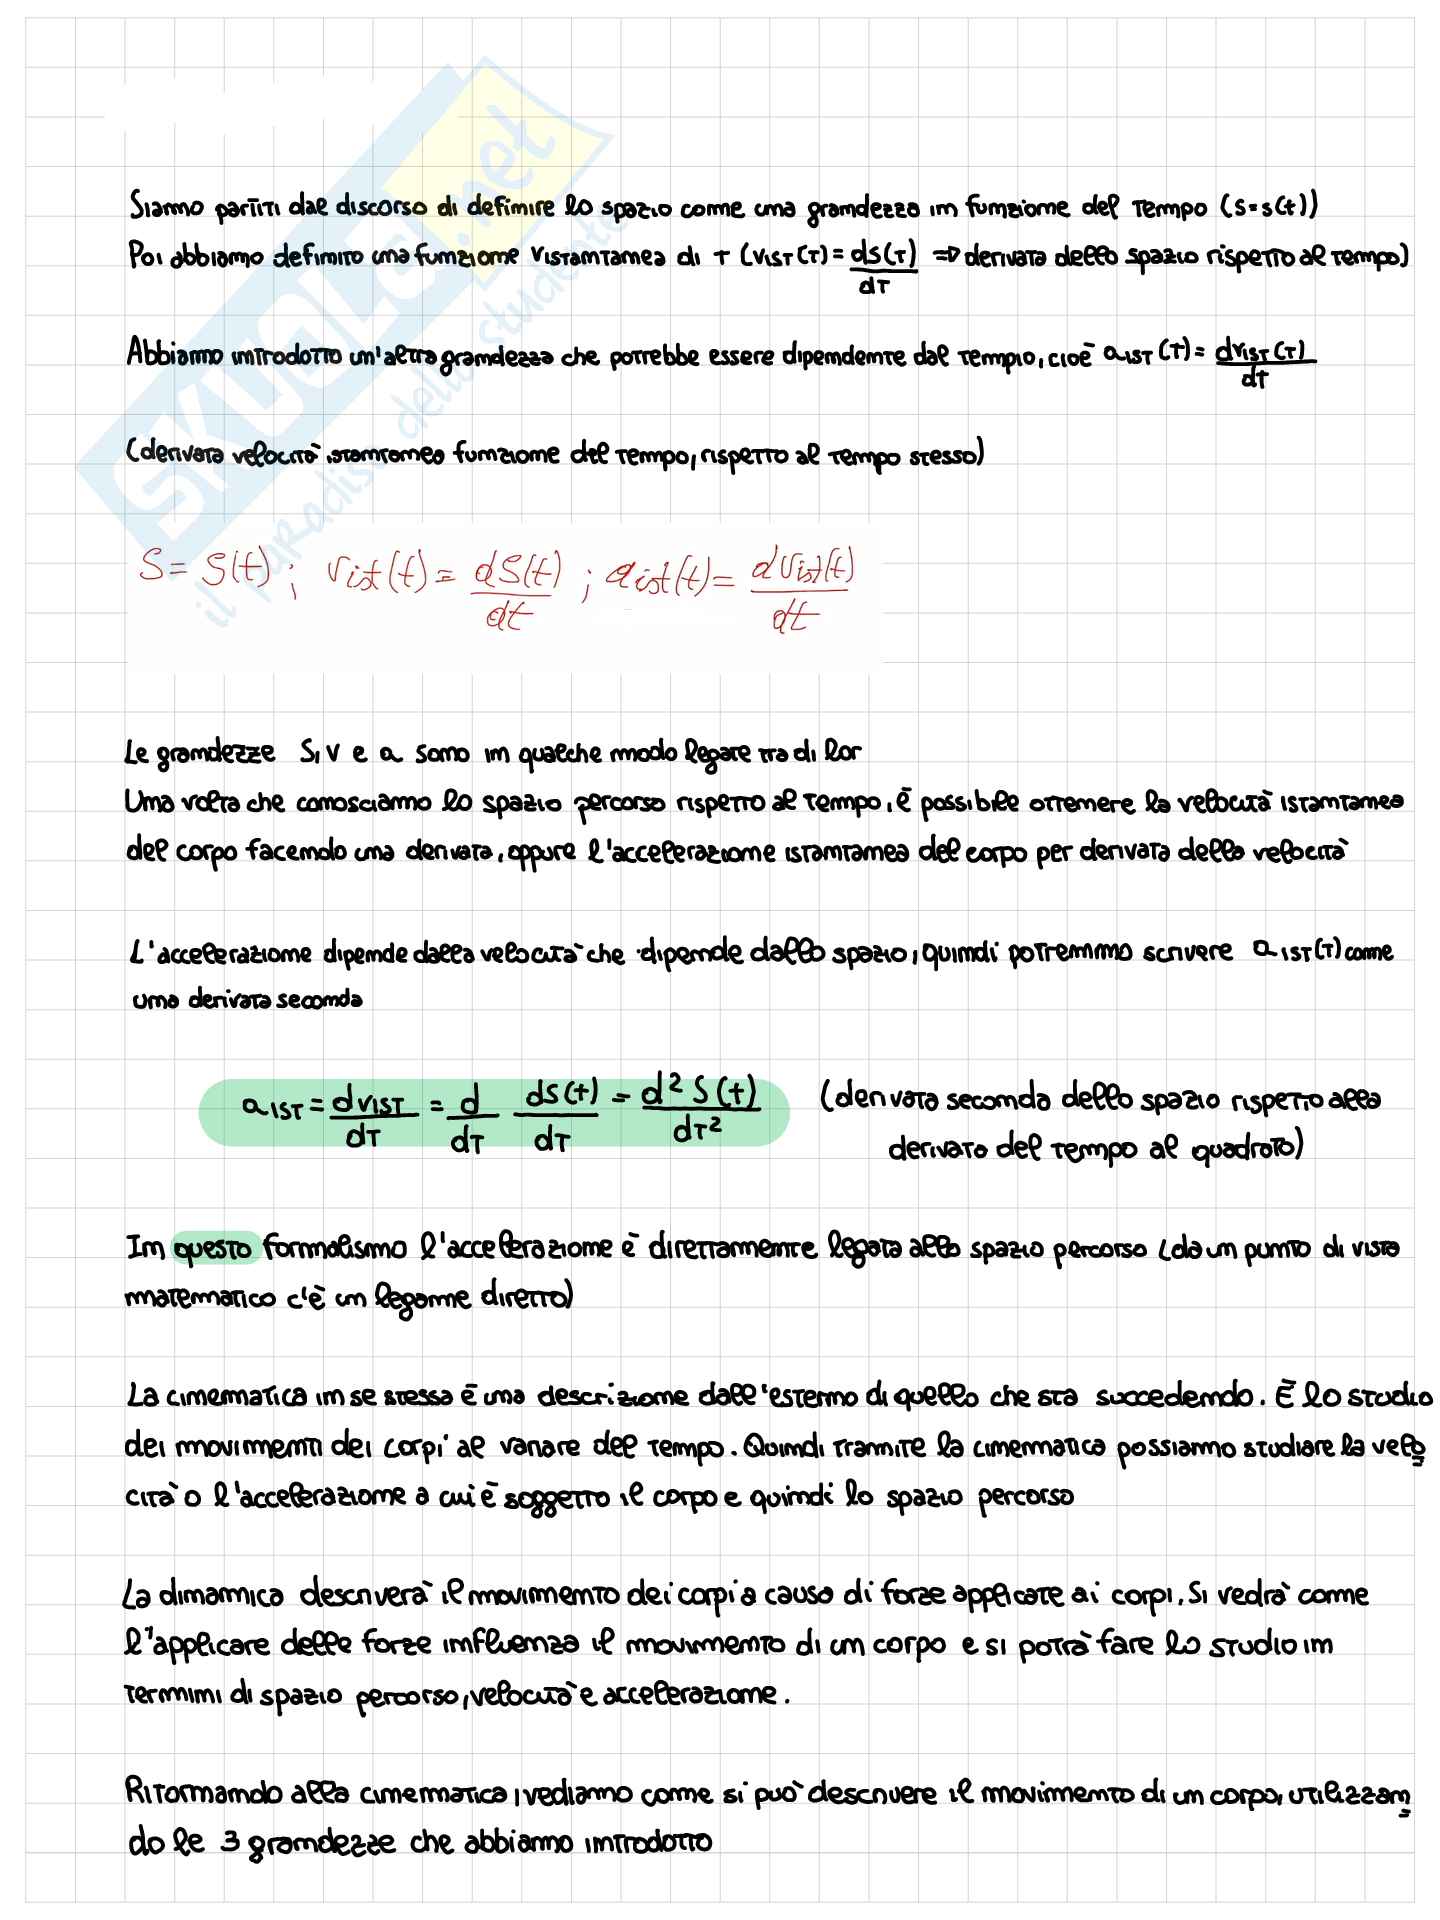 SKUOLA.net
il paradiso dello studente
Siamo partiti dal discorso di definire lo spazio come una grandezza in funzione del tempo (s=s(t))
Poi abbiamo definito una funzione Vistantanea di t (vist(t) = ds(t)/dt ⇒ derivata dello spazio rispetto al tempo)
Abbiamo introdotto un'altra grandezza che potrebbe essere dipendente dal tempio, cioè aist(t) = dvist(t)/dt
(derivata velocità istantanea funzione del tempo, rispetto al tempo stesso)
S = S(t) ; vist(t) = dS(t)/dt ; aist(t) = dvist(t)/dt
Le grandezze S, v e a sono in qualche modo legate tra di lor
Una volta che conosciamo lo spazio percorso rispetto al tempo, è possibile ottenere la velocità istantanea
del corpo facendo una derivata, oppure l'accelerazione istantanea del corpo per derivata della velocità
L'accelerazione dipende dalla velocità che dipende dallo spazio, quindi potremmo scrivere aist(t) come
una derivata seconda
aist = dvist/dt = d/dt ds(t)/dt = d²S(t)/dt² (derivata seconda dello spazio rispetto alla
derivata del tempo al quadrato)
In questo formalismo l'accelerazione è direttamente legata allo spazio percorso (da un punto di vista
matematico c'è un legame diretto)
La cinematica in se stessa è una descrizione dall'esterno di quello che sta succedendo. È lo studio
dei movimenti dei corpi al variare del tempo. Quindi tramite la cinematica possiamo studiare la velo
cità o l'accelerazione a cui è soggetto il corpo e quindi lo spazio percorso
La dinamica descriverà il movimento dei corpi a causa di forze applicate ai corpi. Si vedrà come
l'applicare delle forze influenza il movimento di un corpo e si potrà fare lo studio in
termini di spazio percorso, velocità e accelerazione.
Ritornando alla cinematica, vediamo come si può descrivere il movimento di un corpo, utilizzan
do le 3 grandezze che abbiamo introdotto